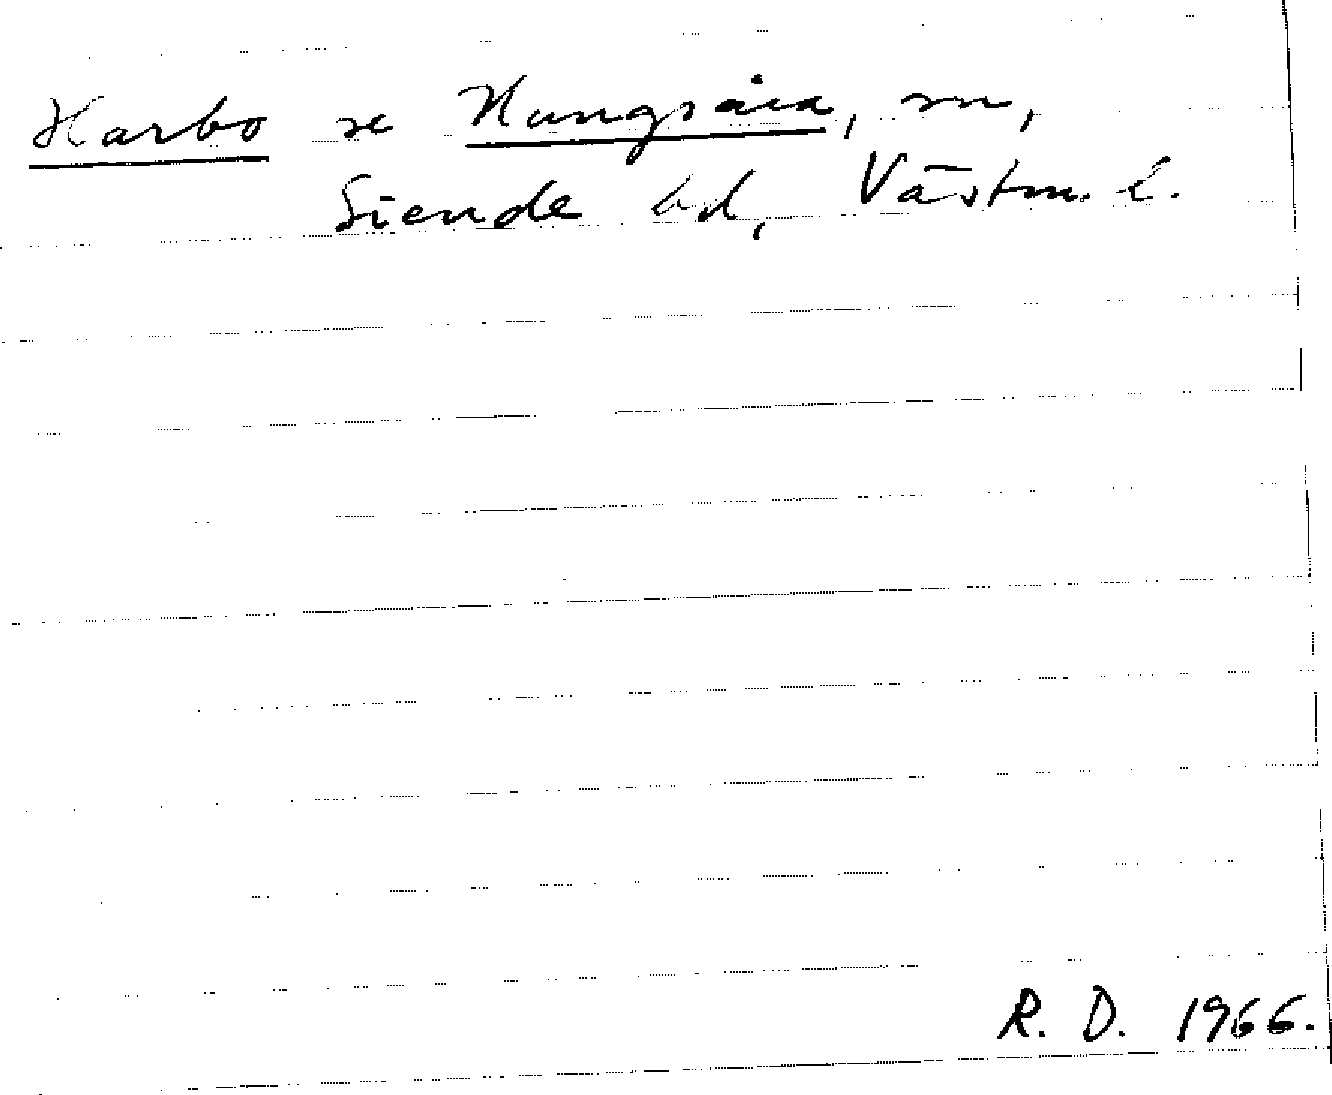 Harbo se Kungsåra, sn,
Siende hd, Västm. l.
R. D. 1966.